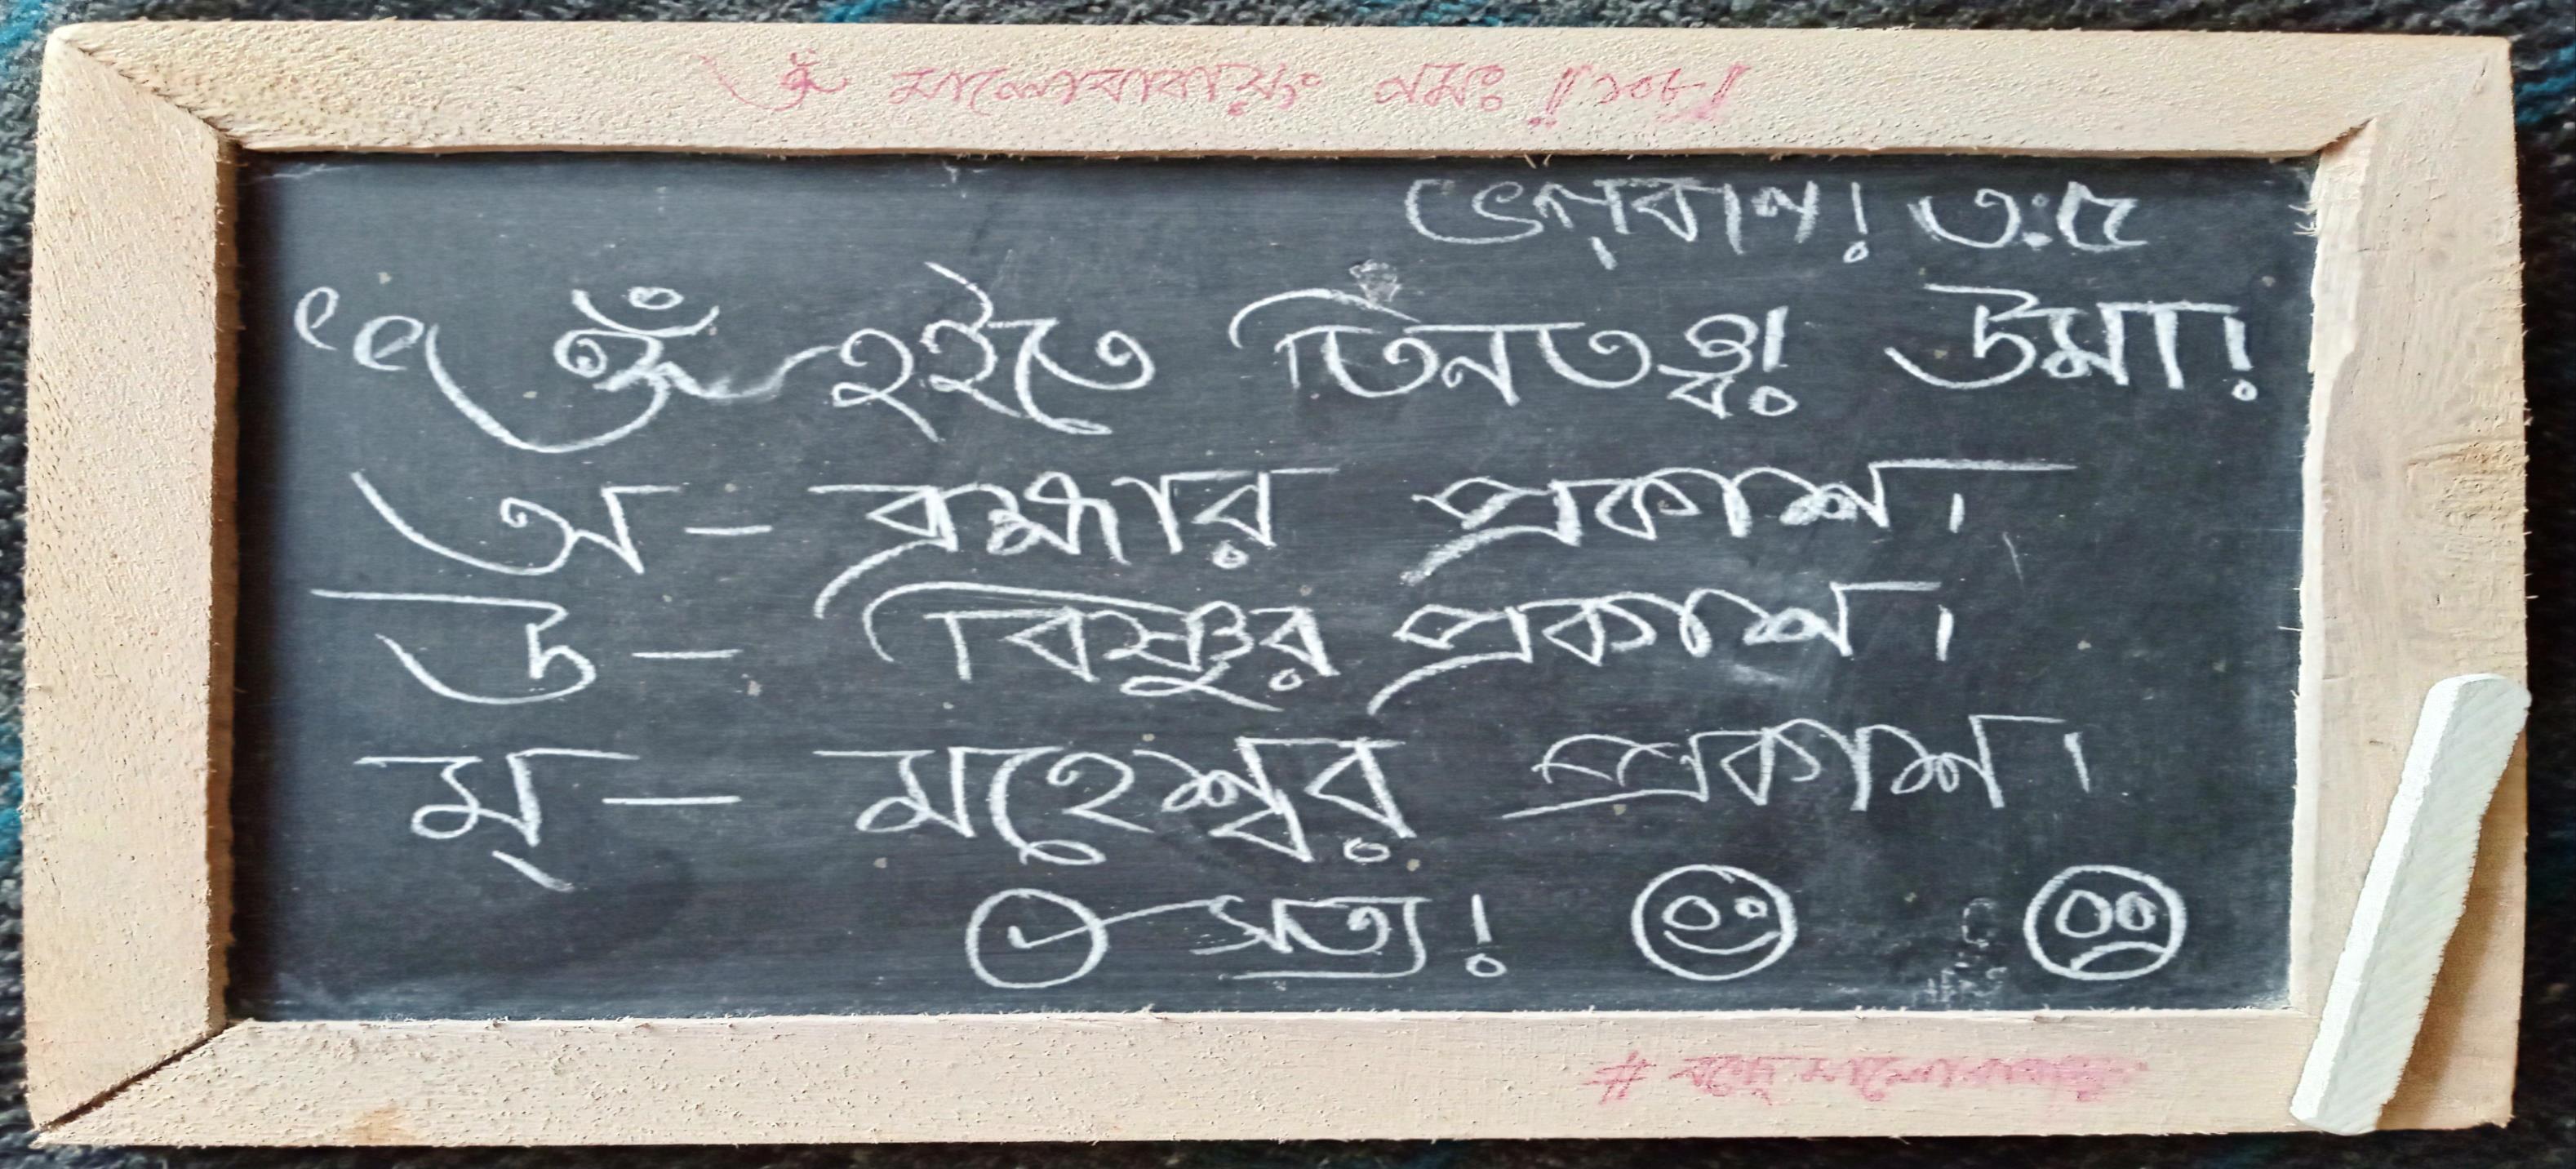 ওঁ মালোবাবায়ৃং নমঃ ‼১০৮॥
ভগ্নবান! ৩:৫
ওঁ হইতে তিনতত্ত্ব! উমা!
অ — ব্রহ্মার প্রকাশ।
উ — বিষ্ণুর প্রকাশ।
ম্ — মহেশ্বর প্রকাশ।
সত্য!
# বন্দে মালো